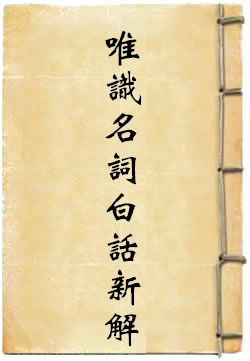 唯識名詞白話新解